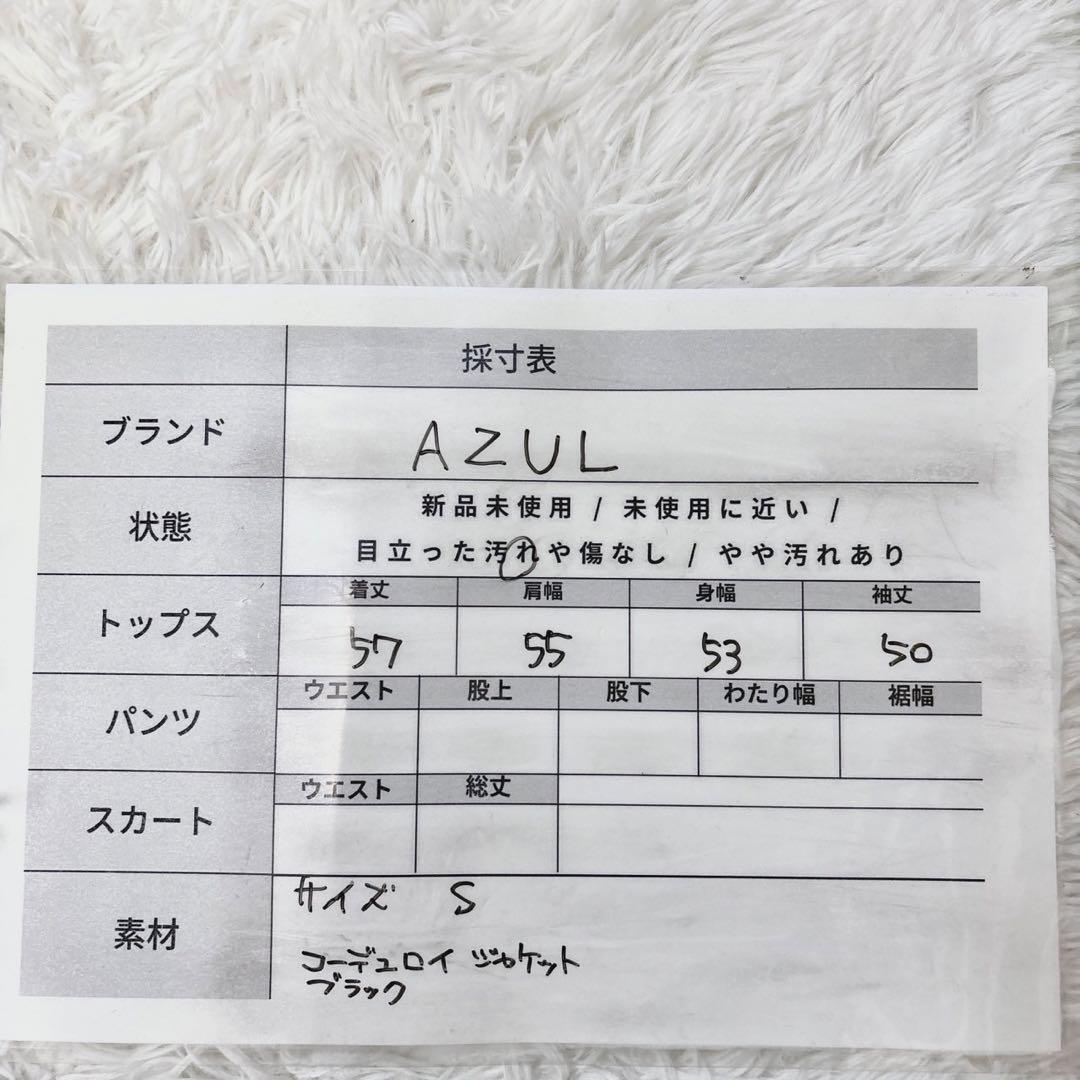 採寸表
ブランド
AZUL
状態
新品未使用 / 未使用に近い /
目立った汚れや傷なし / やや汚れあり
トップス
着丈 肩幅 身幅 袖丈
57 55 53 50
パンツ
ウエスト 股上 股下 わたり幅 裾幅
スカート
ウエスト 総丈
素材
サイズ S
コーデュロイ ジャケット
ブラック